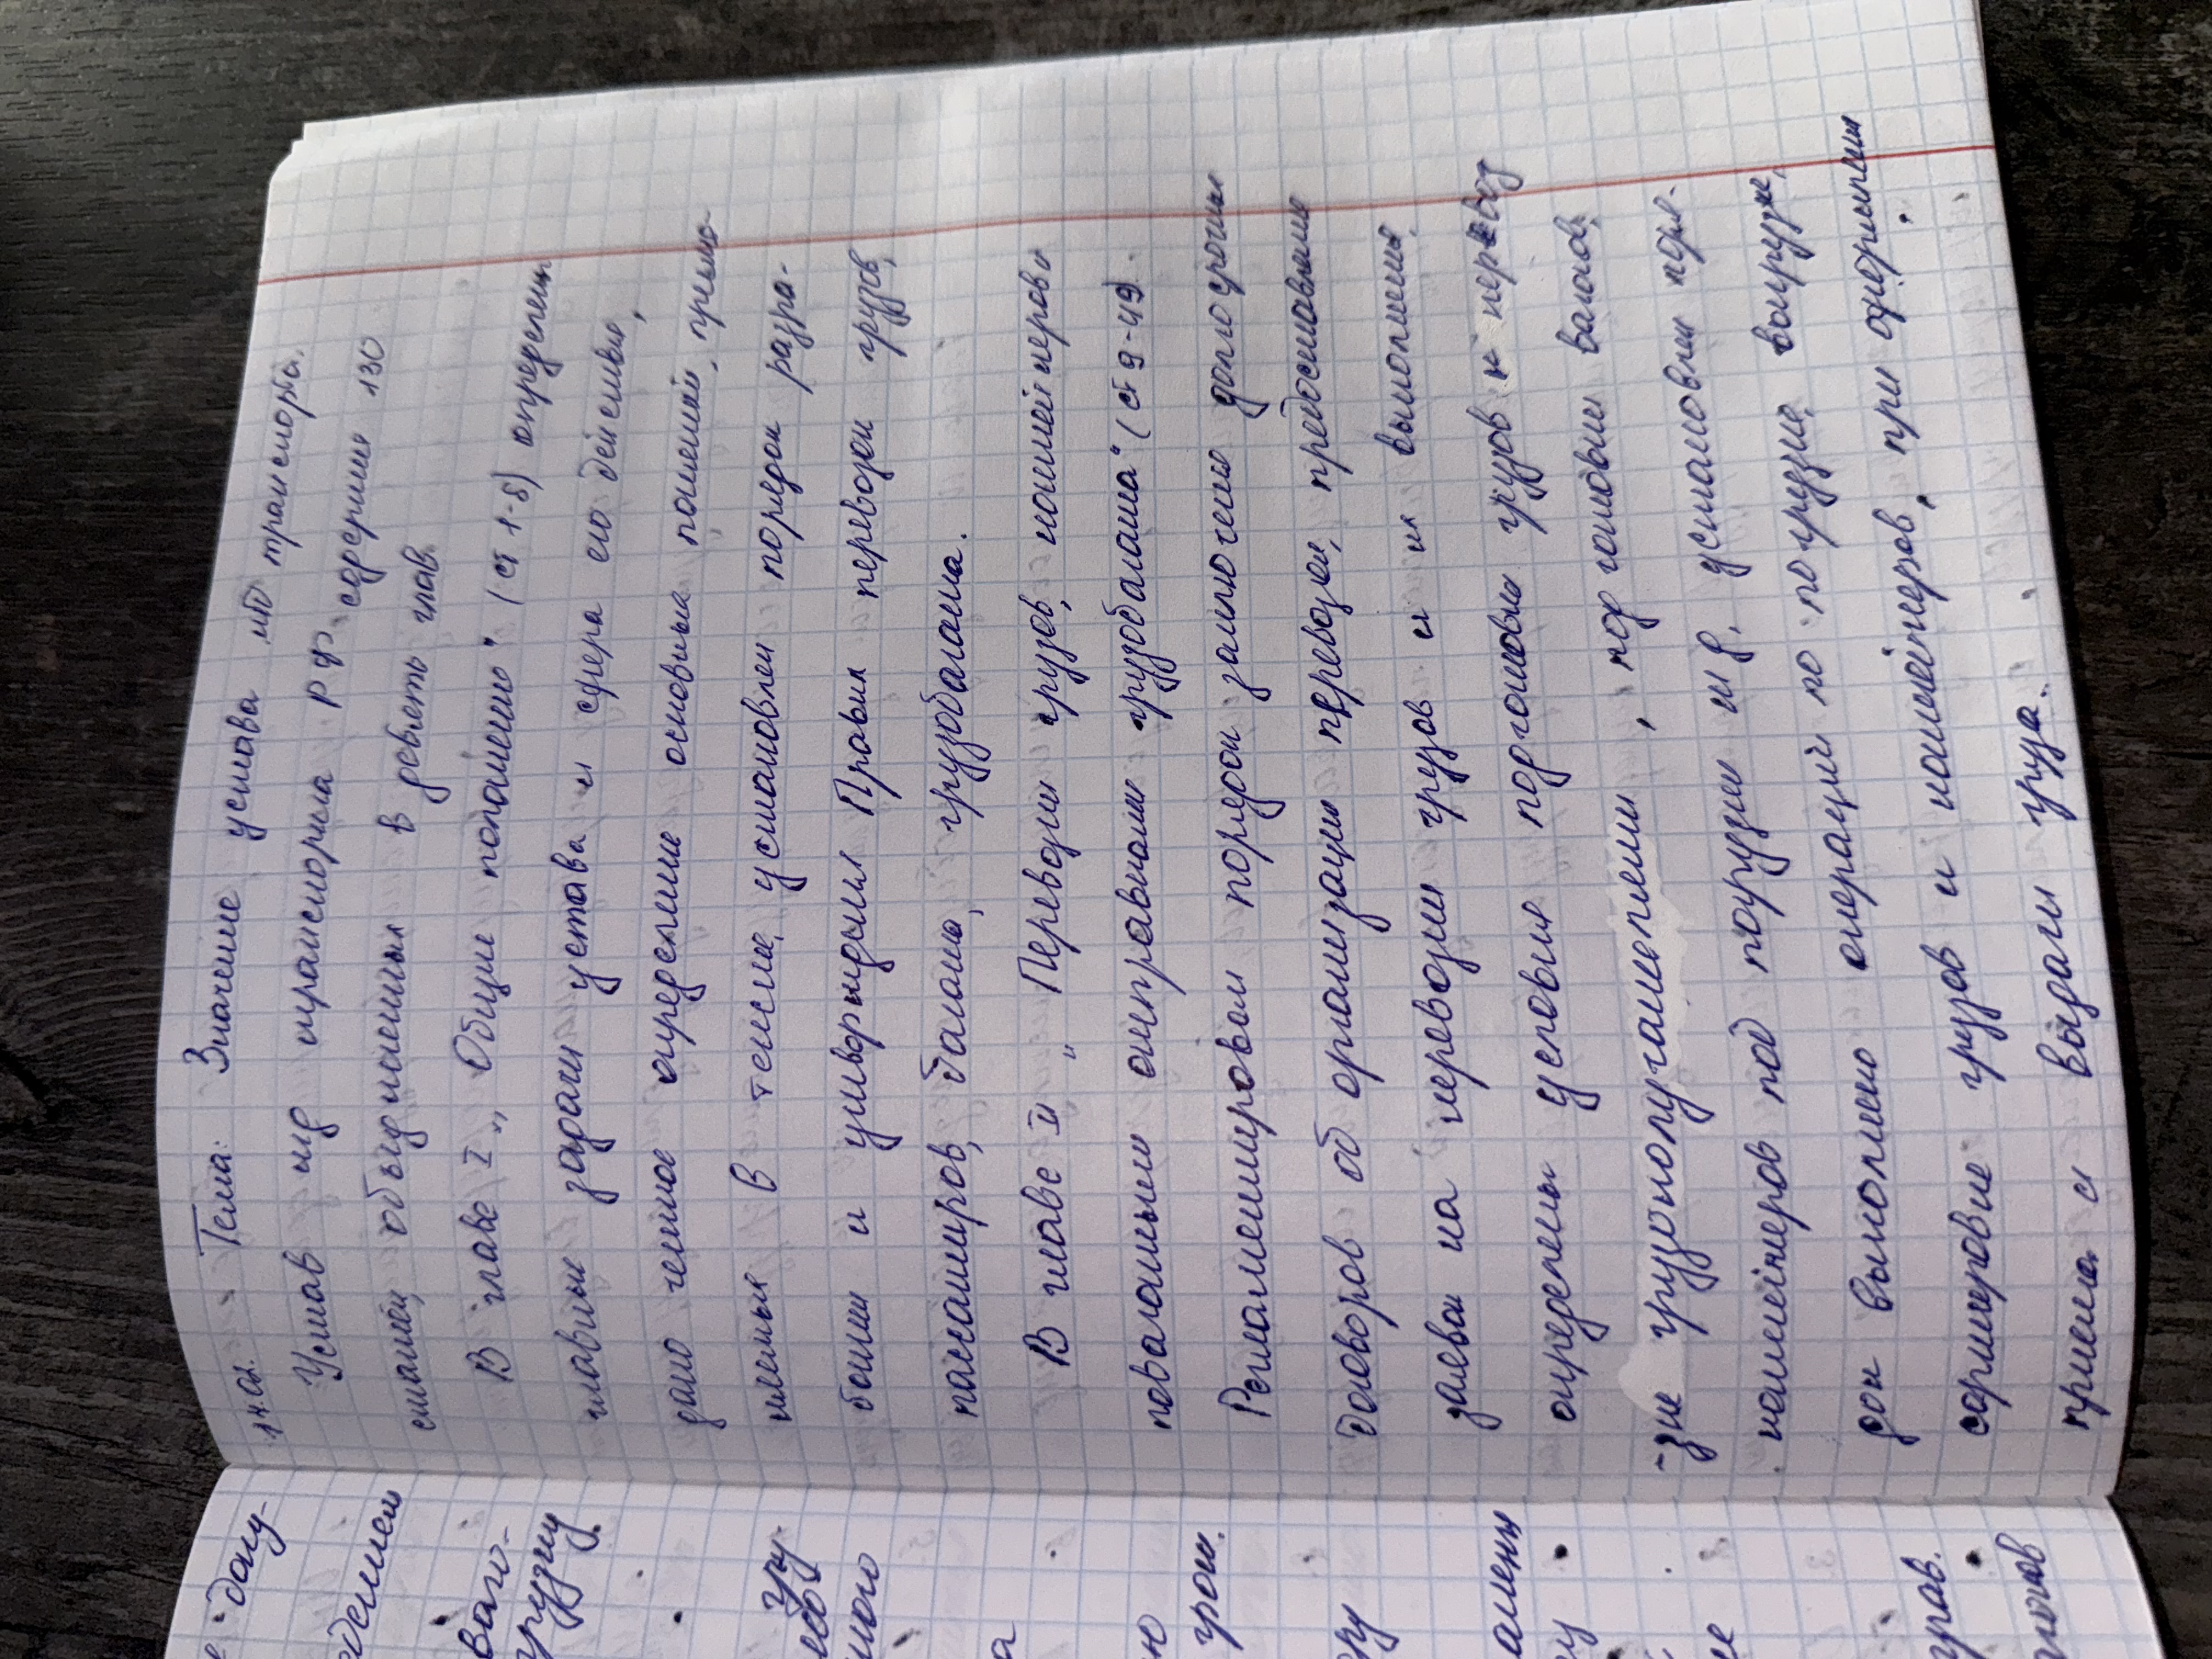 14.02. Тема: Значение устава жд транспорта.
Устав жд транспорта РФ содержит 130
статей, объединенных в девять глав.
В главе I „Общие положения" (ст 1-8) определены
главные задачи устава и сфера его действия,
дано четкое определение основных понятий, приме-
няемых в тексте, установлен порядок разра-
ботки и утверждения Правил перевозки грузов,
пассажиров, багажа, грузобагажа.
В главе II „Перевозки грузов, контейнеров
повагонными отправками грузобагажа" (ст 9-49)
Регламентирован порядок заключения долгосрочных
договоров об организации перевозок, предоставления
заявок на перевозки грузов и их выполнения,
определены условия подготовки грузов к перевоз
-зке грузополучателями, подготовки вагонов,
контейнеров под погрузки и т.д. установлен поря-
док выполнения операций по погрузке, выгрузке,
сортировке грузов и контейнеров, при оформлении
приема и выдачи груза.
доку-
ваго-
грузку
гру
ного
а
ю
грузу
е